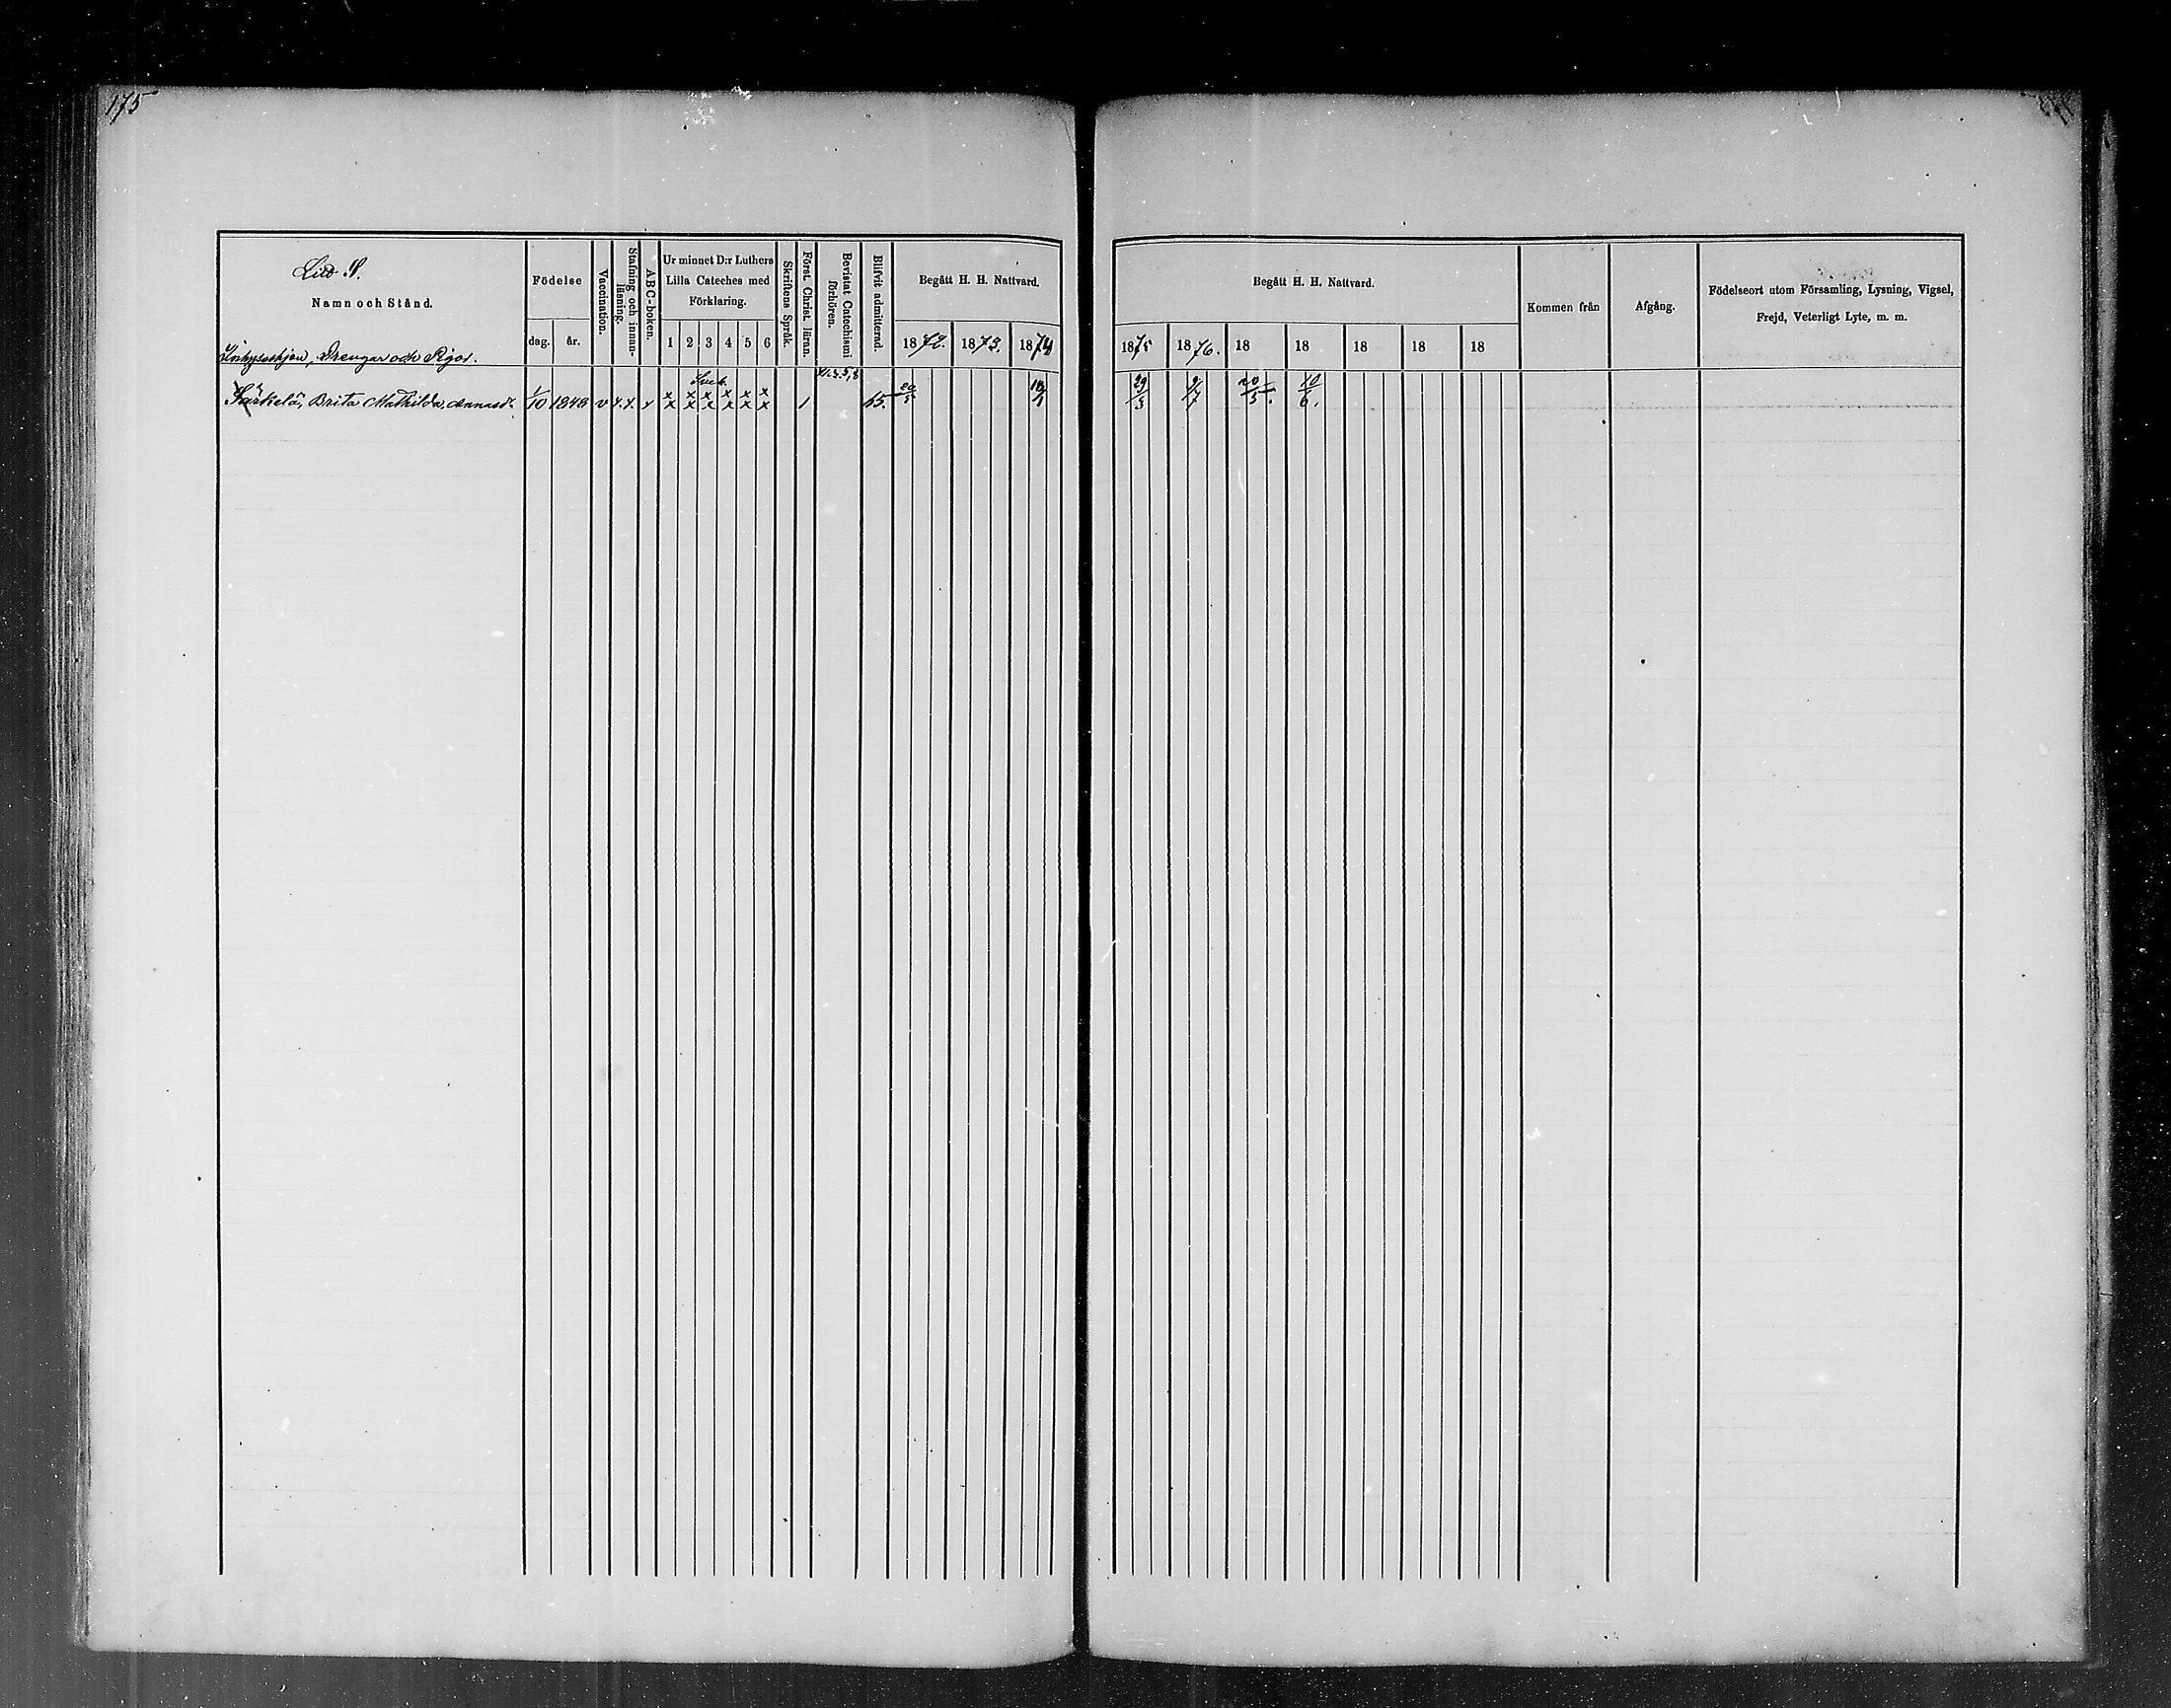 175
Litt S.
Namn och Stånd.
Födelse
dag. år.
Vaccination.
Stafning och innanläsning.
ABC-boken.
Ur minnet D:r Luthers
Lilla Cateches med
Förklaring.
1 2 3 4 5 6
Skriftens Språk.
Först. Christ. läran.
Bevistat Catechismi
förhören.
Blifvit admitterad.
Begått H. H. Nattvard.
1872. 1873. 1874
Begått H. H. Nattvard.
1875 1876. 18 18 18 18 18
Kommen från
Afgång.
Födelseort utom Församling, Lysning, Vigsel,
Frejd, Veterligt Lyte, m. m.
Inhyseshjon, Drengar och Pigor.
Särkelä, Brita Mathilda, Annasdr 1/10 1848 v x x x x x x x x x x x x x x x 1 65. 20/5 29/3 9/7 20/5 10/6.